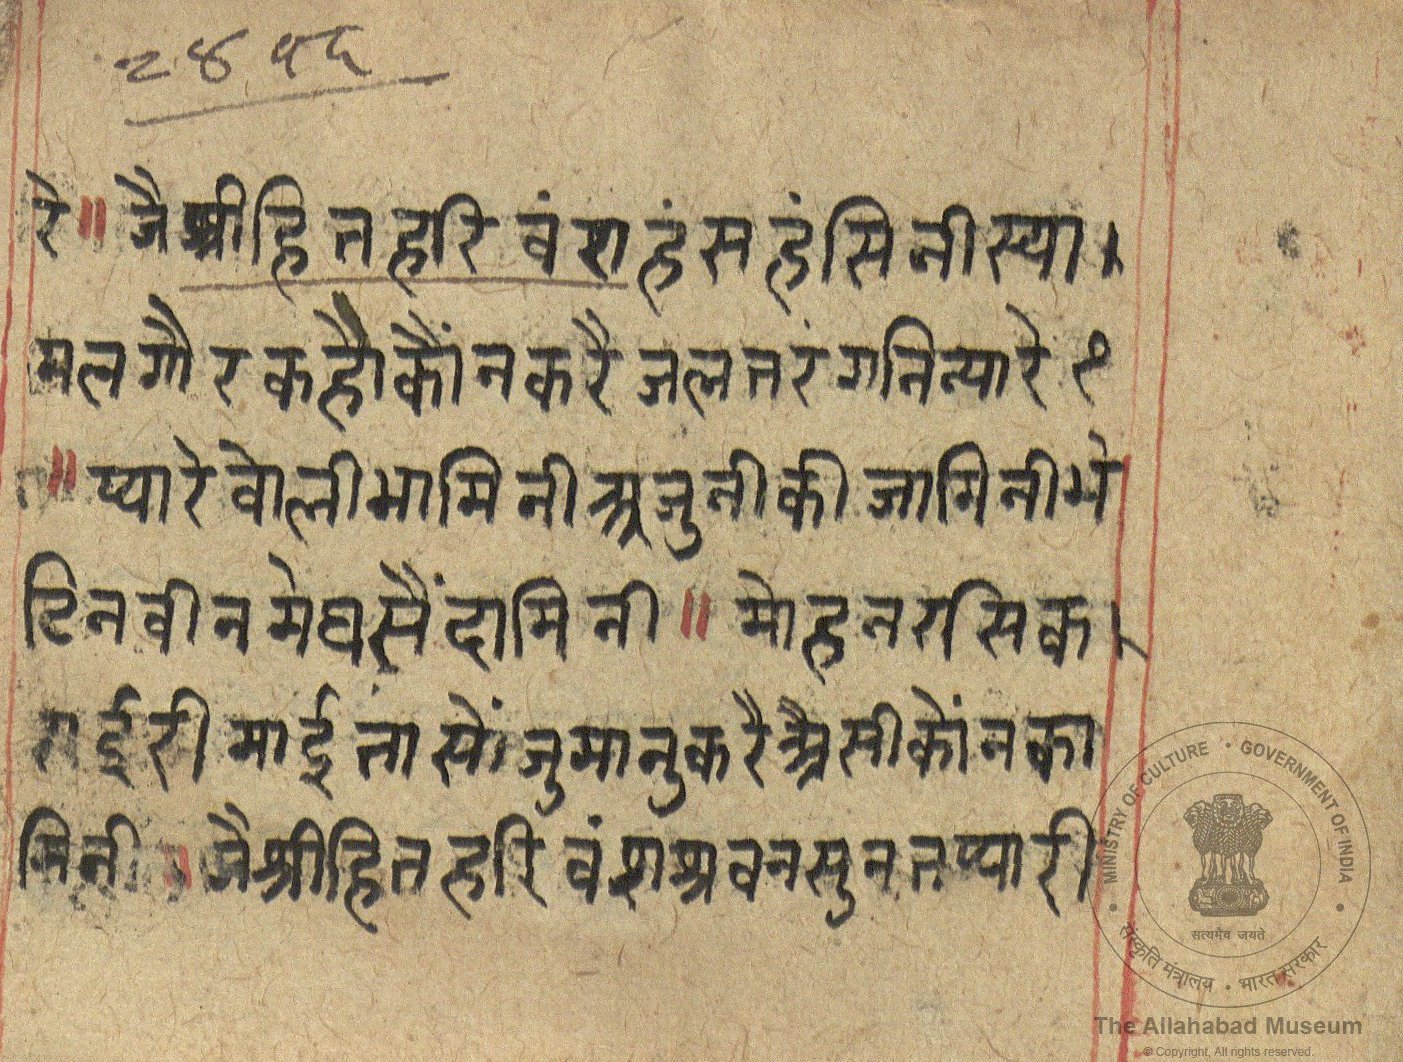 २४५६
रे ॥ जै श्री हित हरि वंश हंस हंसिनी स्या।
मल गौर कहौ कौंन करै जल तरंगनि न्यारे १
॥ प्यारे वोली भामिनी आजु नीकी जामिनी भे
टि नवीन मेघ सैं दामिनी ॥ मोहन रसिक।
राईरी माई ता सों जु मानु करै अैसी कोंन का
मिनी ॥ जै श्री हित हरि वंश श्रवन सुनत प्यारी
MINISTRY OF CULTURE • GOVERNMENT OF INDIA
सत्यमेव जयते
संस्कृति मंत्रालय • भारत सरकार
The Allahabad Museum
© Copyright, All rights reserved.